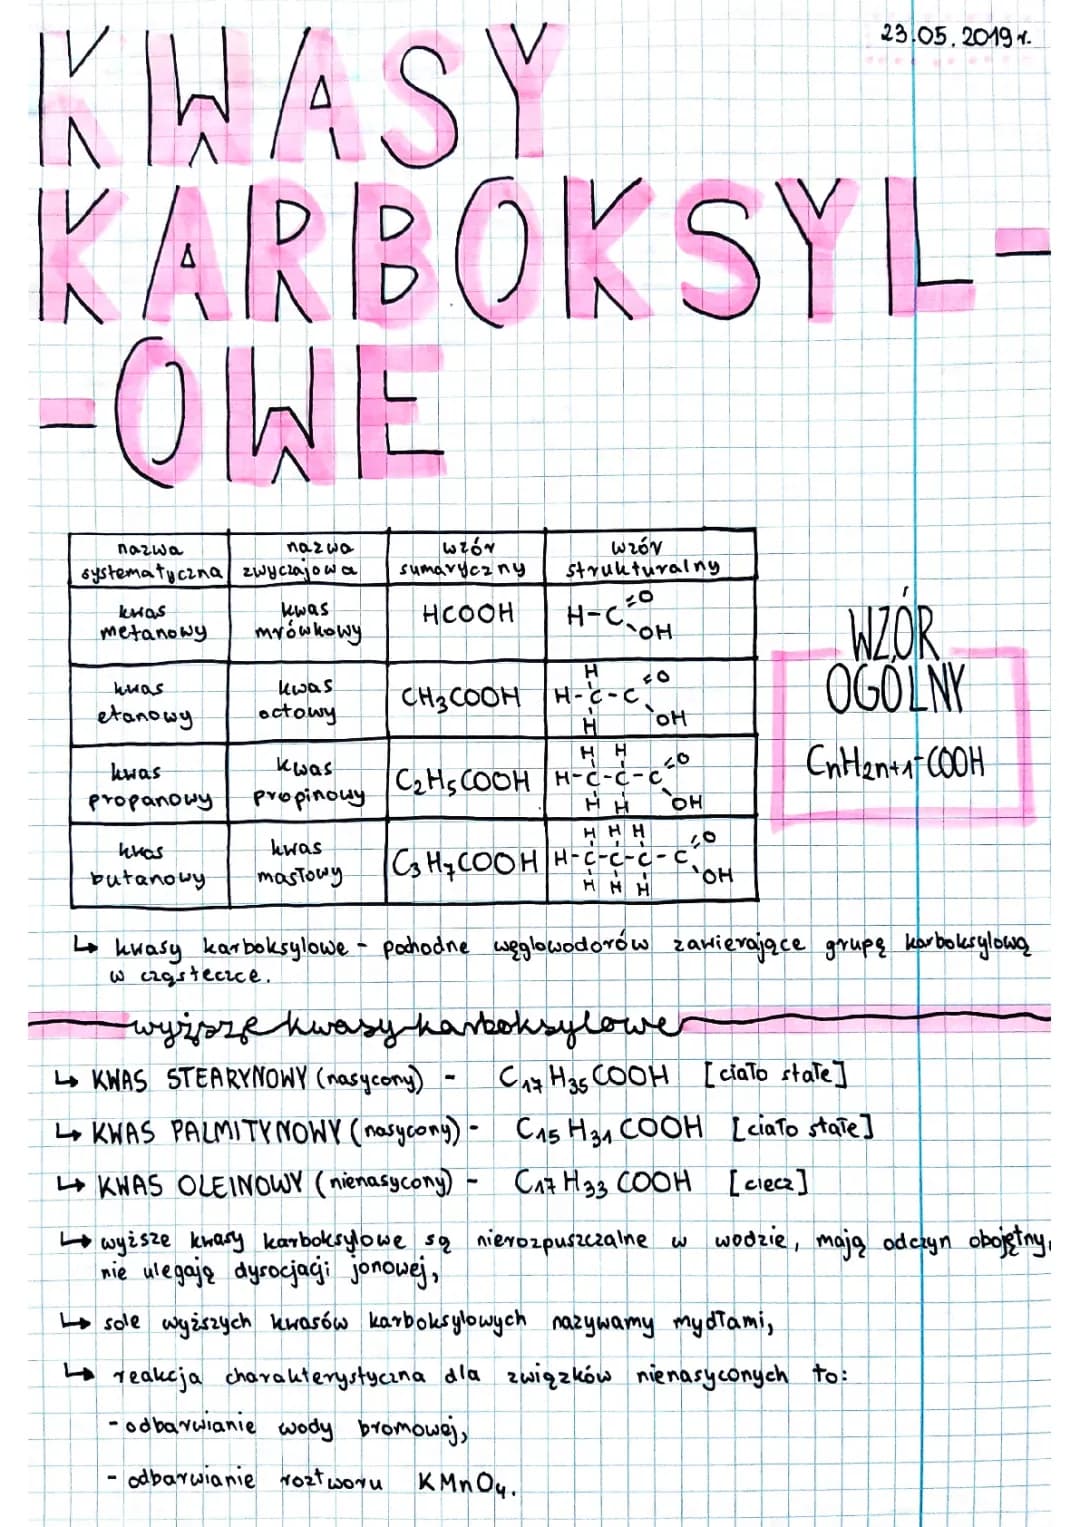 23.05.2019r.
KWASY
KARBOKSYL-
-OWE
nazwa systematyczna | nazwa zwyczajowa | wzór sumaryczny | wzór strukturalny
kwas metanowy | kwas mrówkowy | HCOOH | H-C=O OH
kwas etanowy | kwas octowy | CH3COOH | H H-C-C=O H OH
kwas propanowy | kwas propinowy | C2H5COOH | H H H-C-C-C=O H H OH
kwas butanowy | kwas masłowy | C3H7COOH | H H H H-C-C-C-C=O H H H OH
WZÓR
OGÓLNY
CnH2n+1-COOH
↳ kwasy karboksylowe - pochodne węglowodorów zawierające grupę karboksylową
w cząsteczce.
wyższe kwasy karboksylowe
↳ KWAS STEARYNOWY (nasycony) - C17H35COOH [ciało stałe]
↳ KWAS PALMITYNOWY (nasycony) - C15H31COOH [ciało stałe]
↳ KWAS OLEINOWY (nienasycony) - C17H33COOH [ciecz]
↳ wyższe kwasy karboksylowe są nierozpuszczalne w wodzie, mają odczyn obojętny,
nie ulegają dysocjacji jonowej,
↳ sole wyższych kwasów karboksylowych nazywamy mydłami,
↳ reakcja charakterystyczna dla związków nienasyconych to:
- odbarwianie wody bromowej,
- odbarwianie roztworu KMnO4.